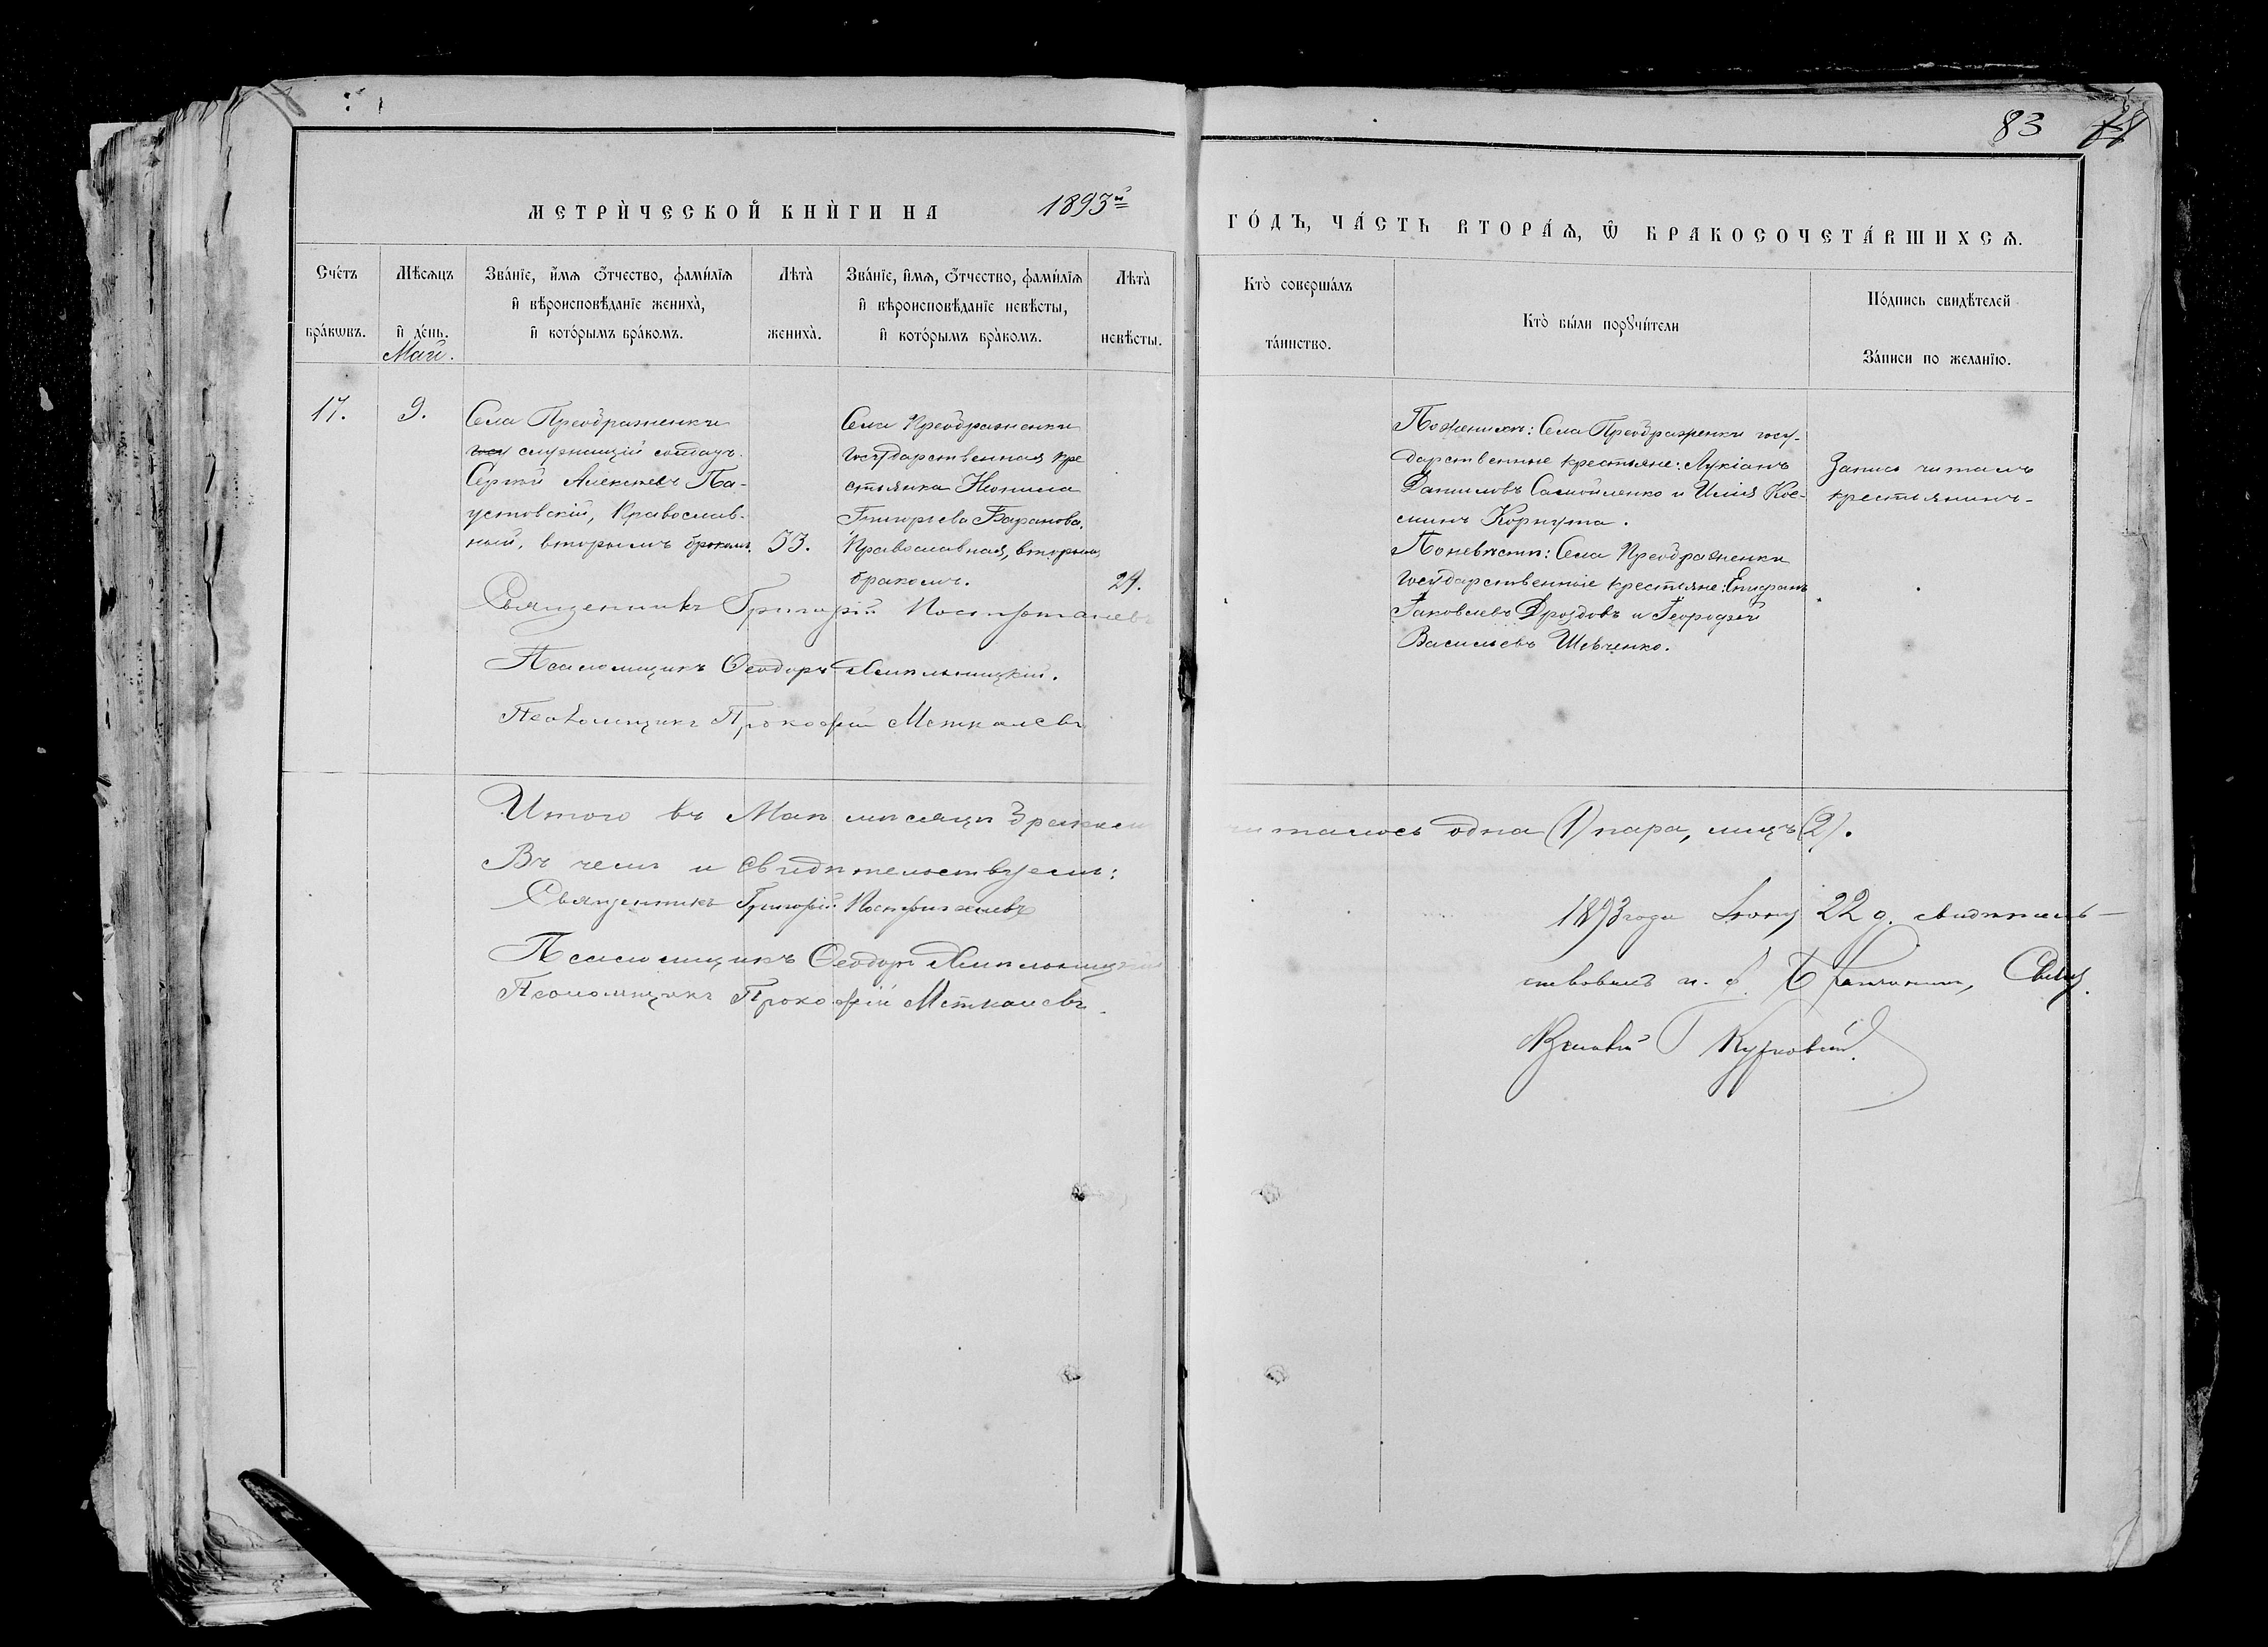 83
МЕТРИ́ЧЕСКОЙ КНИ́ГИ НА 1893й
ГО́ДЪ, ЧА́СТЬ ВТОРА́Ѧ, Ѡ҆ БРАКОСОЧЕТА́ВШИХСѦ.
Сче́тъ
бра́кѡвъ.
Мѣсѧцъ
и҆ де́нь.
Май.
Зва́нїе, и҆́мѧ ѻ҆́тчество, фамѝлїѧ
и҆ вѣроисповѣ́данїе женихà,
и҆ кото́рымъ бра́комъ.
Лѣтà
женихà.
Зва́нїе, и҆́мѧ, ѻ҆́тчество, фамѝлїѧ
и҆ вѣроисповѣ́данїе невѣ́сты,
и҆ кото́рымъ бра́комъ.
Лѣтà
невѣ́сты.
Кто̀ соверша́лъ
та́инство.
Кто̀ бы́ли порꙋчи́тели
По́дпись свидѣ́телей
За́писи по жела́нїю.
17.
9.
Села Преображенки
служащій солдатъ
Сергѣй Алексѣевъ Па-
устовскій, Православ-
ный, вторымъ бракомъ.
33.
Села Преображенки
государственная кре
стьянка Неонила
Григорьева Баранова.
Православная, вторымъ
бракомъ.
29.
Священникъ Григорій
Псаломщикъ Ѳеодоръ Хмѣльницкій.
Псаломщикъ Прокофій Меткалевъ
По женихѣ: Села Преображенки госу-
дарственные крестьяне: Лукіанъ
Даниловъ Самойленко и Илія Кос-
минъ Корпута.
По невѣстѣ: Села Преображенки
государственные крестьяне: Епифанъ
Іаковлевъ Дроздовъ и Георгій
Васильевъ Шевченко.
Запись читалъ
крестьянинъ-
Итого въ Маѣ мѣсяцѣ
талось одна (1) пара, лицъ (2).
Въ чемъ и свидѣтельствуемъ:
Священникъ Григорій
Псаломщикъ Ѳеодоръ Хмѣльницкій
Псаломщикъ Прокофій Меткалевъ.
1893 года 22 д. свидѣтель-
ствовалъ